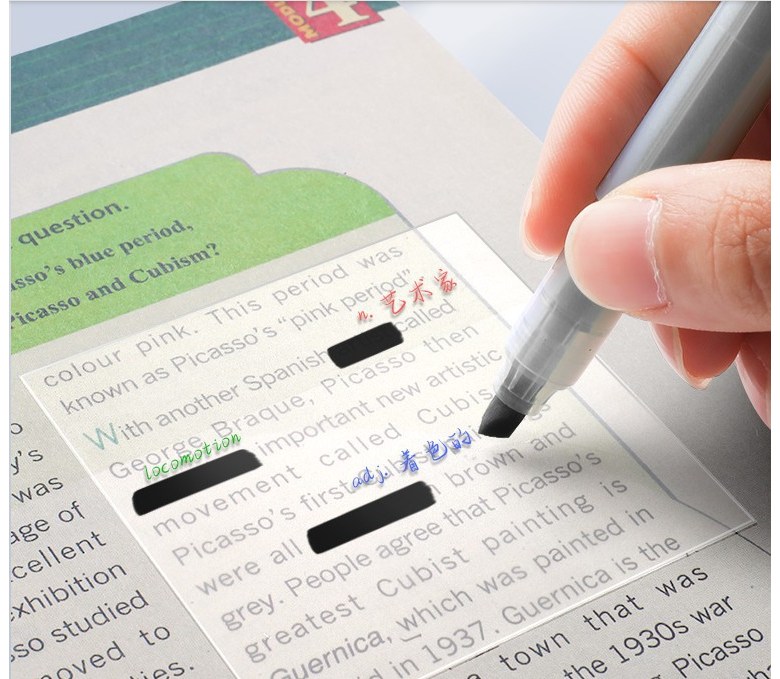 MODU
4
question.
asso's blue period,
Picasso and Cubism?
colour pink. This period was
known as Picasso's "pink period"
n. 艺术家
With another Spanish called
George Braque, Picasso then
locomotion
important new artistic
movement called Cubis
adj. 着色的
Picasso's first
were all brown and
grey. People agree that Picasso's
greatest Cubist painting is
Guernica, which was painted in
d in 1937. Guernica is the
y's
was
age of
cellent
exhibition
sso studied
oved to
ies.
a town that was
the 1930s war
Picasso